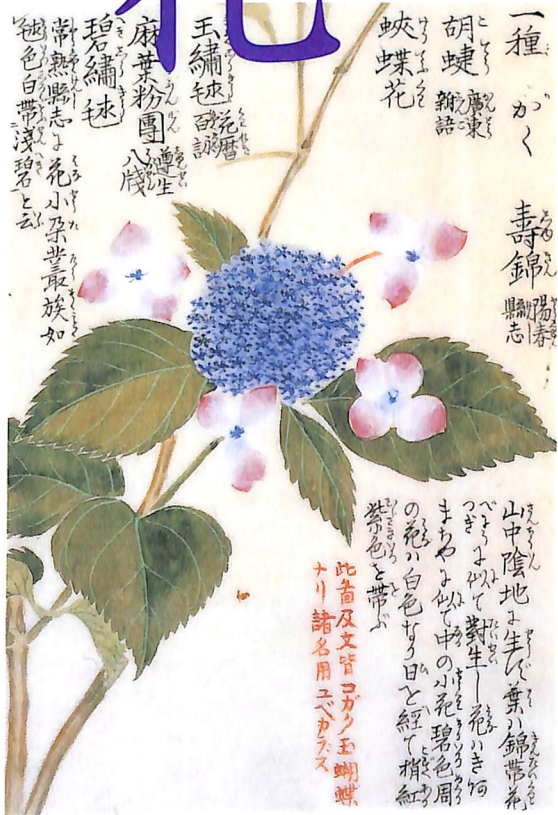 一種 がく
壽錦 陽春縣志
胡蜨 廣東雑語
蛺蝶花
玉繡毬 花暦百詠
麻葉粉團 遵生八牋
碧繡毬
常熟縣志に花小朶叢族如
毬色白帶淺碧と云
山中陰地に生ず葉ハ錦帶花
に似て對生し花ハき
に似て中の小花碧色周
の花ハ白色なり日を經て梢紅
紫色を帶ぶ
此首及文皆コガク玉蝴蝶
ナリ諸名用ユベカラズ